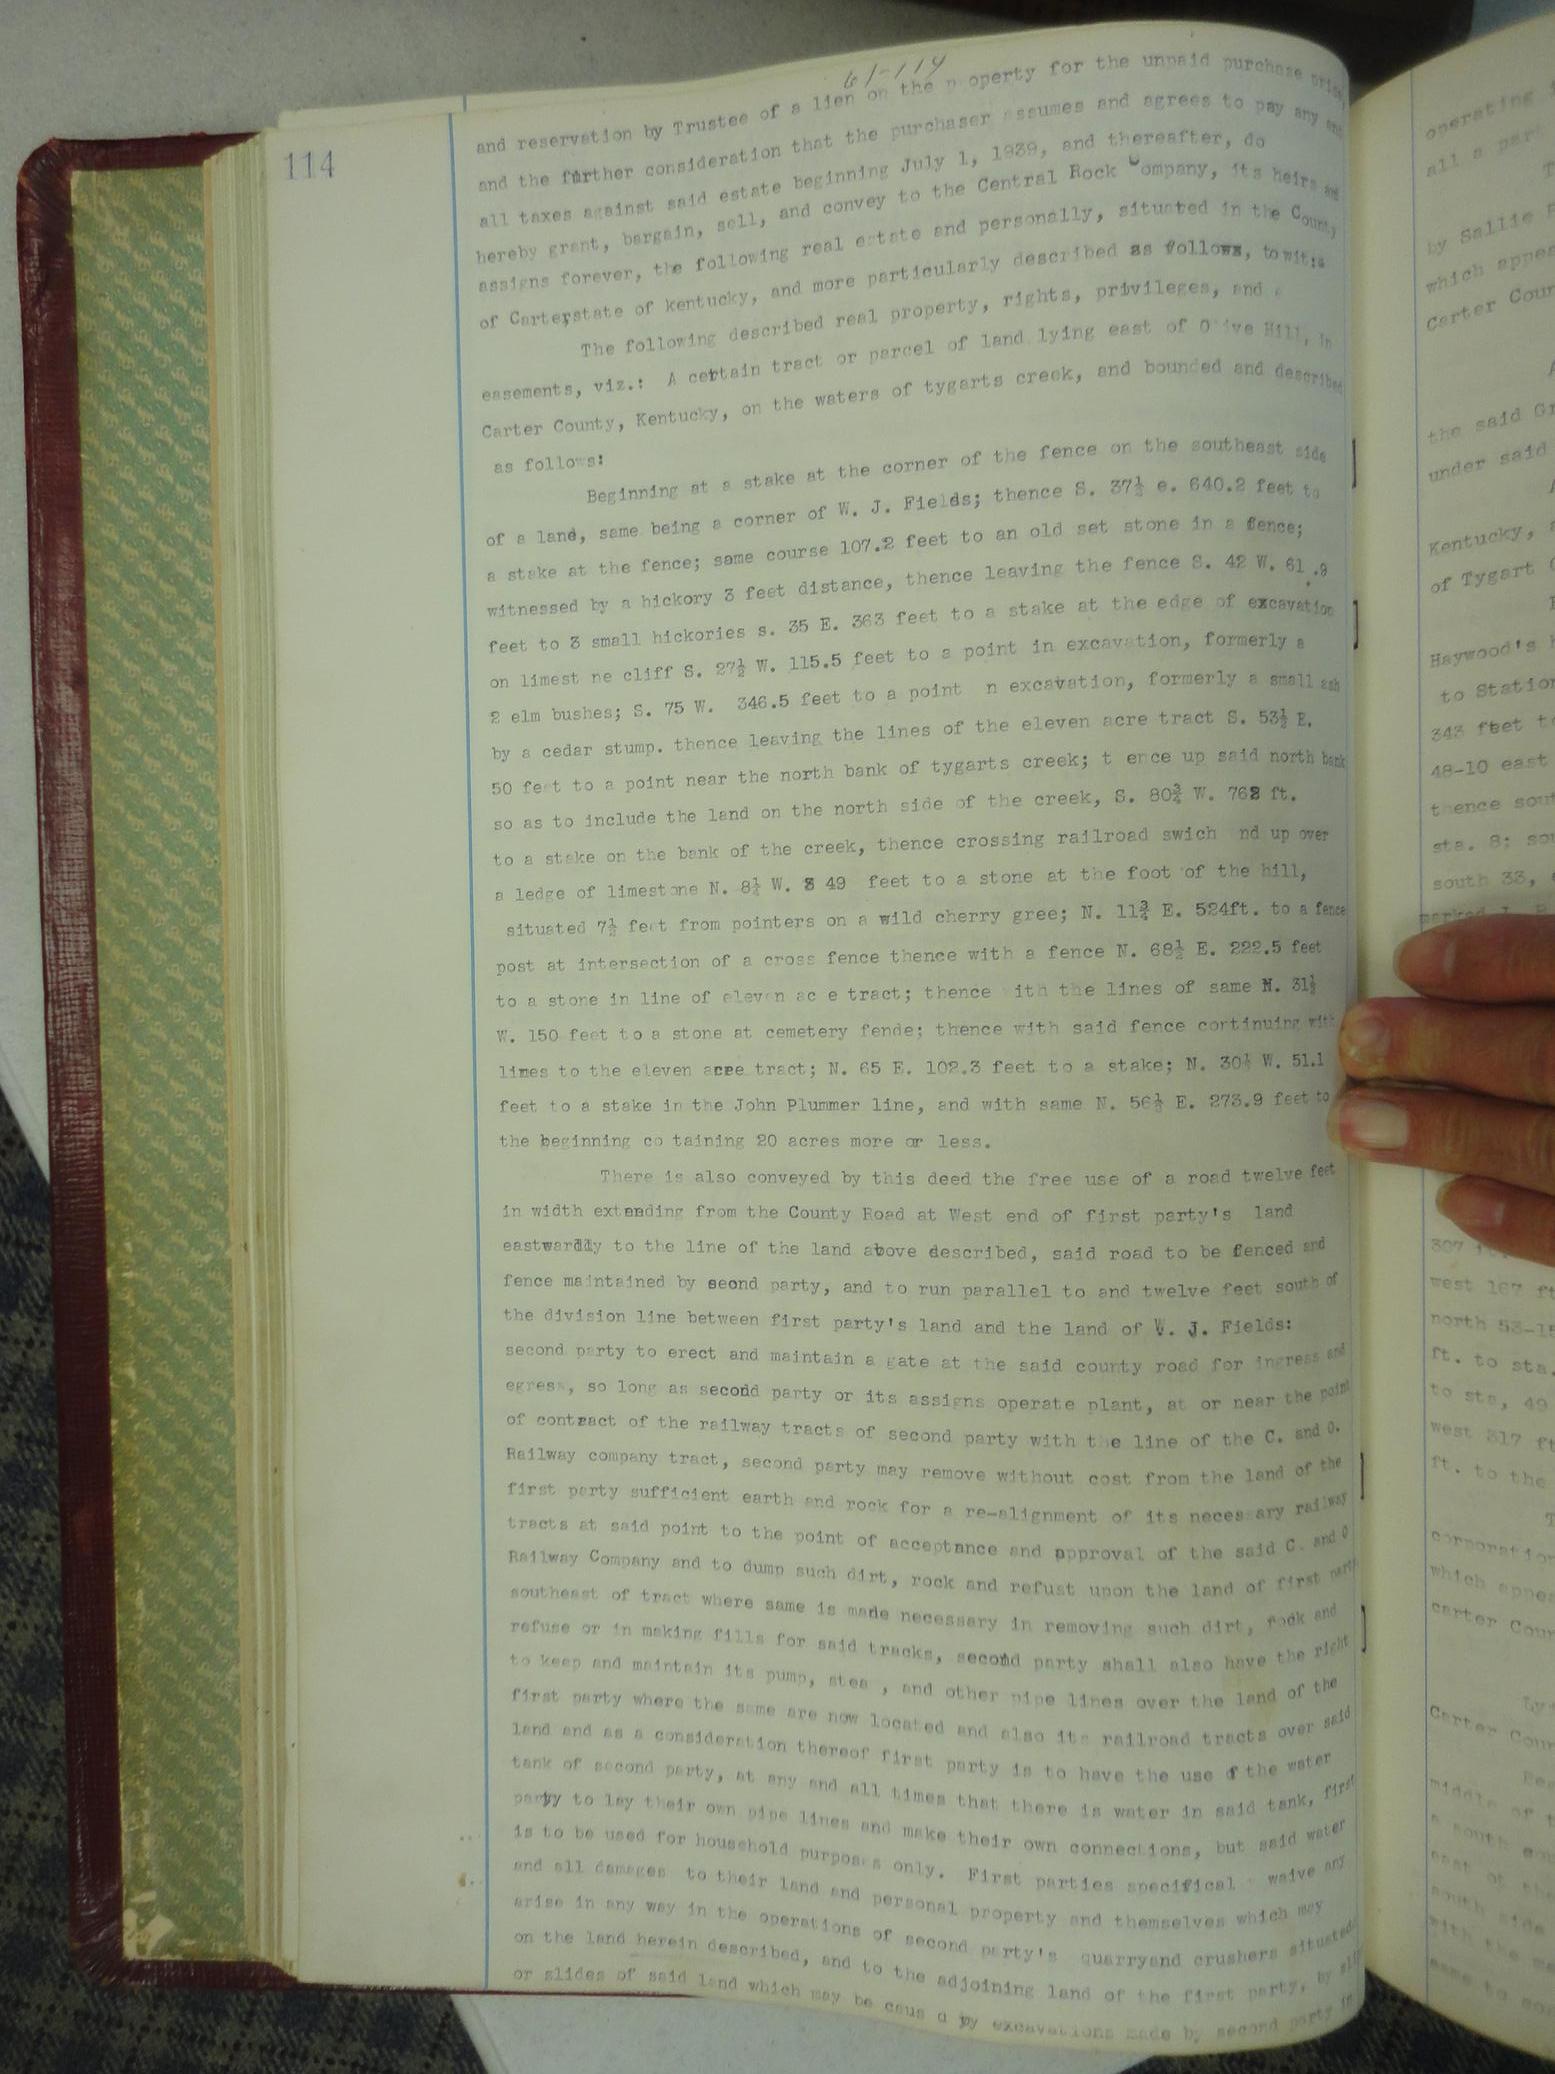 61-114
114
and reservation by Trustee of a lien on the p operty for the unpaid purchase price,
and the further consideration that the purchaser assumes and agrees to pay any and
all taxes against said estate beginning July 1, 1939, and thereafter, do
hereby grant, bargain, sell, and convey to the Central Rock Company, its heirs and
assigns forever, the following real estate and personally, situated in the County
of Carter,state of kentucky, and more particularly described as follows, towit:
The following described real property, rights, privileges, and
easements, viz.: A certain tract or parcel of land lying east of Olive Hill, in
Carter County, Kentucky, on the waters of tygarts creek, and bounded and described
as follows:
Beginning at a stake at the corner of the fence on the southeast side
of a land, same being a corner of W. J. Fields; thence S. 37½ e. 640.2 feet to
a stake at the fence; same course 107.2 feet to an old set stone in a fence;
witnessed by a hickory 3 feet distance, thence leaving the fence S. 42 W. 61.9
feet to 3 small hickories s. 35 E. 363 feet to a stake at the edge of excavation
on limest ne cliff S. 27½ W. 115.5 feet to a point in excavation, formerly a
2 elm bushes; S. 75 W. 346.5 feet to a point n excavation, formerly a small ash
by a cedar stump. thence leaving the lines of the eleven acre tract S. 53½ E.
50 feet to a point near the north bank of tygarts creek; t ence up said north bank
so as to include the land on the north side of the creek, S. 80¾ W. 762 ft.
to a stake on the bank of the creek, thence crossing railroad swich nd up over
a ledge of limestone N. 8½ W. 849 feet to a stone at the foot of the hill,
situated 7½ feet from pointers on a wild cherry gree; N. 11¾ E. 524ft. to a fence
post at intersection of a cross fence thence with a fence N. 68½ E. 222.5 feet
to a stone in line of eleven ac e tract; thence ith the lines of same N. 31½
W. 150 feet to a stone at cemetery fende; thence with said fence continuing with
lines to the eleven acre tract; N. 65 E. 102.3 feet to a stake; N. 30½ W. 51.1
feet to a stake in the John Plummer line, and with same N. 56½ E. 273.9 feet to
the beginning co taining 20 acres more or less.
There is also conveyed by this deed the free use of a road twelve feet
in width extending from the County Road at West end of first party's land
eastwardly to the line of the land above described, said road to be fenced and
fence maintained by seond party, and to run parallel to and twelve feet south of
the division line between first party's land and the land of W. J. Fields:
second party to erect and maintain a gate at the said county road for ingress and
egress, so long as second party or its assigns operate plant, at or near the point
of contract of the railway tracts of second party with the line of the C. and O.
Railway company tract, second party may remove without cost from the land of the
first party sufficient earth and rock for a re-alignment of its necessary railway
tracts at said point to the point of acceptance and approval of the said C. and O
Railway Company and to dump such dirt, rock and refust upon the land of first party
southeast of tract where same is made necessary in removing such dirt, rock and
refuse or in making fills for said tracks, second party shall also have the right
to keep and maintain its pump, stea , and other pipe lines over the land of the
first party where the same are now located and also its railroad tracts over said
land and as a consideration thereof first party is to have the use of the water
tank of second party, at any and all times that there is water in said tank, first
party to lay their own pipe lines and make their own connections, but said water
is to be used for household purposes only. First parties specifical waive any
and all damages to their land and personal property and themselves which may
arise in any way in the operations of second party's quarryand crushers situated
on the land herein described, and to the adjoining land of the first party, by
or slides of said land which may be caus d by excavations made by second party in
operating
all a part
by Sallie
which appea
Carter Coun
the said Gr
under said
Kentucky,
of Tygart
Haywood's
to Station
343 feet to
48-10 east
thence sout
sta. 8; sou
south 33,
307
west 167 ft
north 53-15
ft. to sta.
to sta, 49
west 317 ft
ft. to the
corporation
which appea
carter Coun
Carter Coun
middle of t
south side
with the